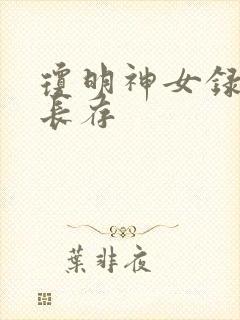 瓊明神女録
長存
葉非夜